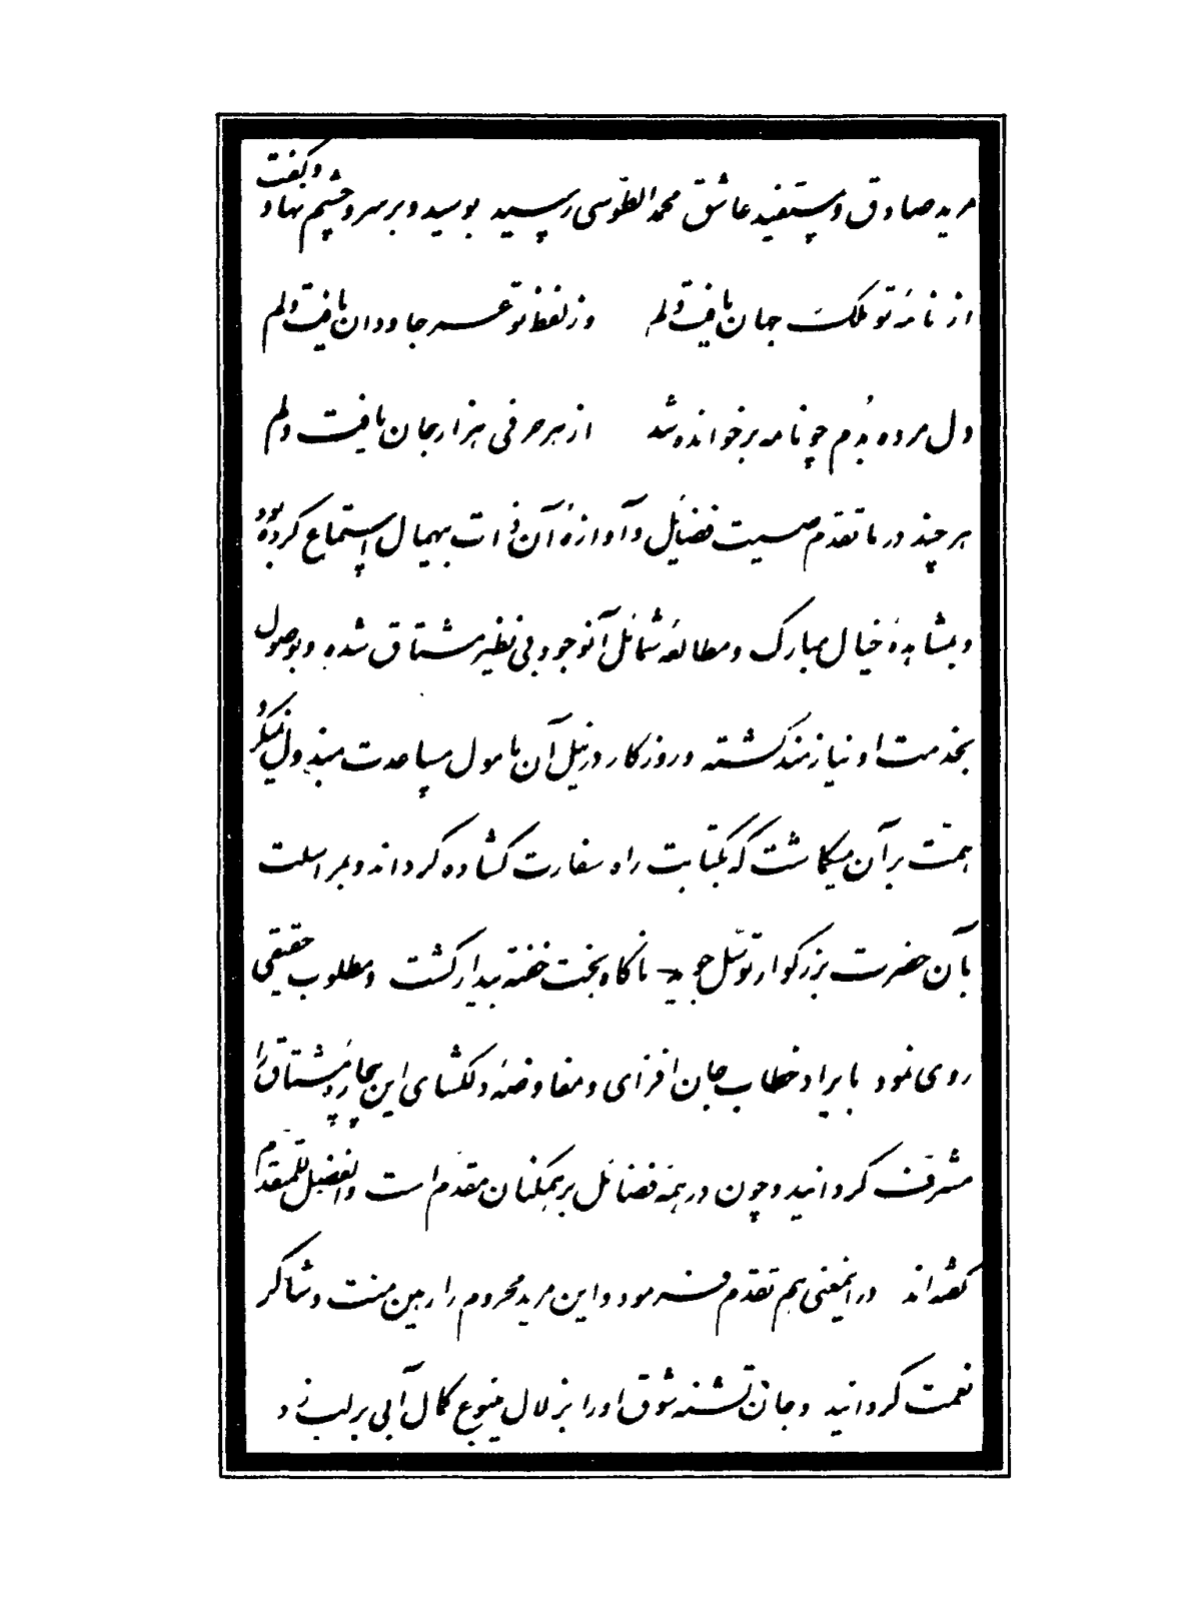 مرید صادق و مستفید عاشق محمد الطّوسی رسید بوسید و بر سر و چشم نهاد و کفت
از نامهٔ تو ملک جهان یافت دلم وز لفظ تو عمر جاودان یافت دلم
دل مرده بُدم چو نامه برخوانده شد از هر حرفی هزار جان یافت دلم
هر چند در ما تقدم صیت فضایل و آوازهٔ آن ذات بیهمال استماع کرده بود
و بمشاهدهٔ خیال مبارک و مطالعهٔ شمائل آنوجود بی نظیر مشتاق شده و بوصول
بخدمت او نیازمند کشته و روزکار در نیل آن مامول مساعدت مبذول نمیکرد
همّت بر آن میکماشت که بکتابت راه سفارت کشاده کرداند و بمراسلت
بآن حضرت بزرکوار توسّل جوید ناکاه بخت خفته بیدار کشت و مطلوب حقیقی
روی نمود بایراد خطاب جان افزای و مفاوضهٔ دلکشای این بیچارهٔ مشتاق را
مشرّف کردانید و چون در همهٔ فضائل بر همکنان مقدّم است و الفضل للمتقدّم
کفته‌اند در اینمعنی هم تقدّم فرمود و این مرید محروم را رهین منت و شاکر
نعمت کردانید و جان تشنه شوق او را بزلال ینبوع کمال آبی بر لب زد